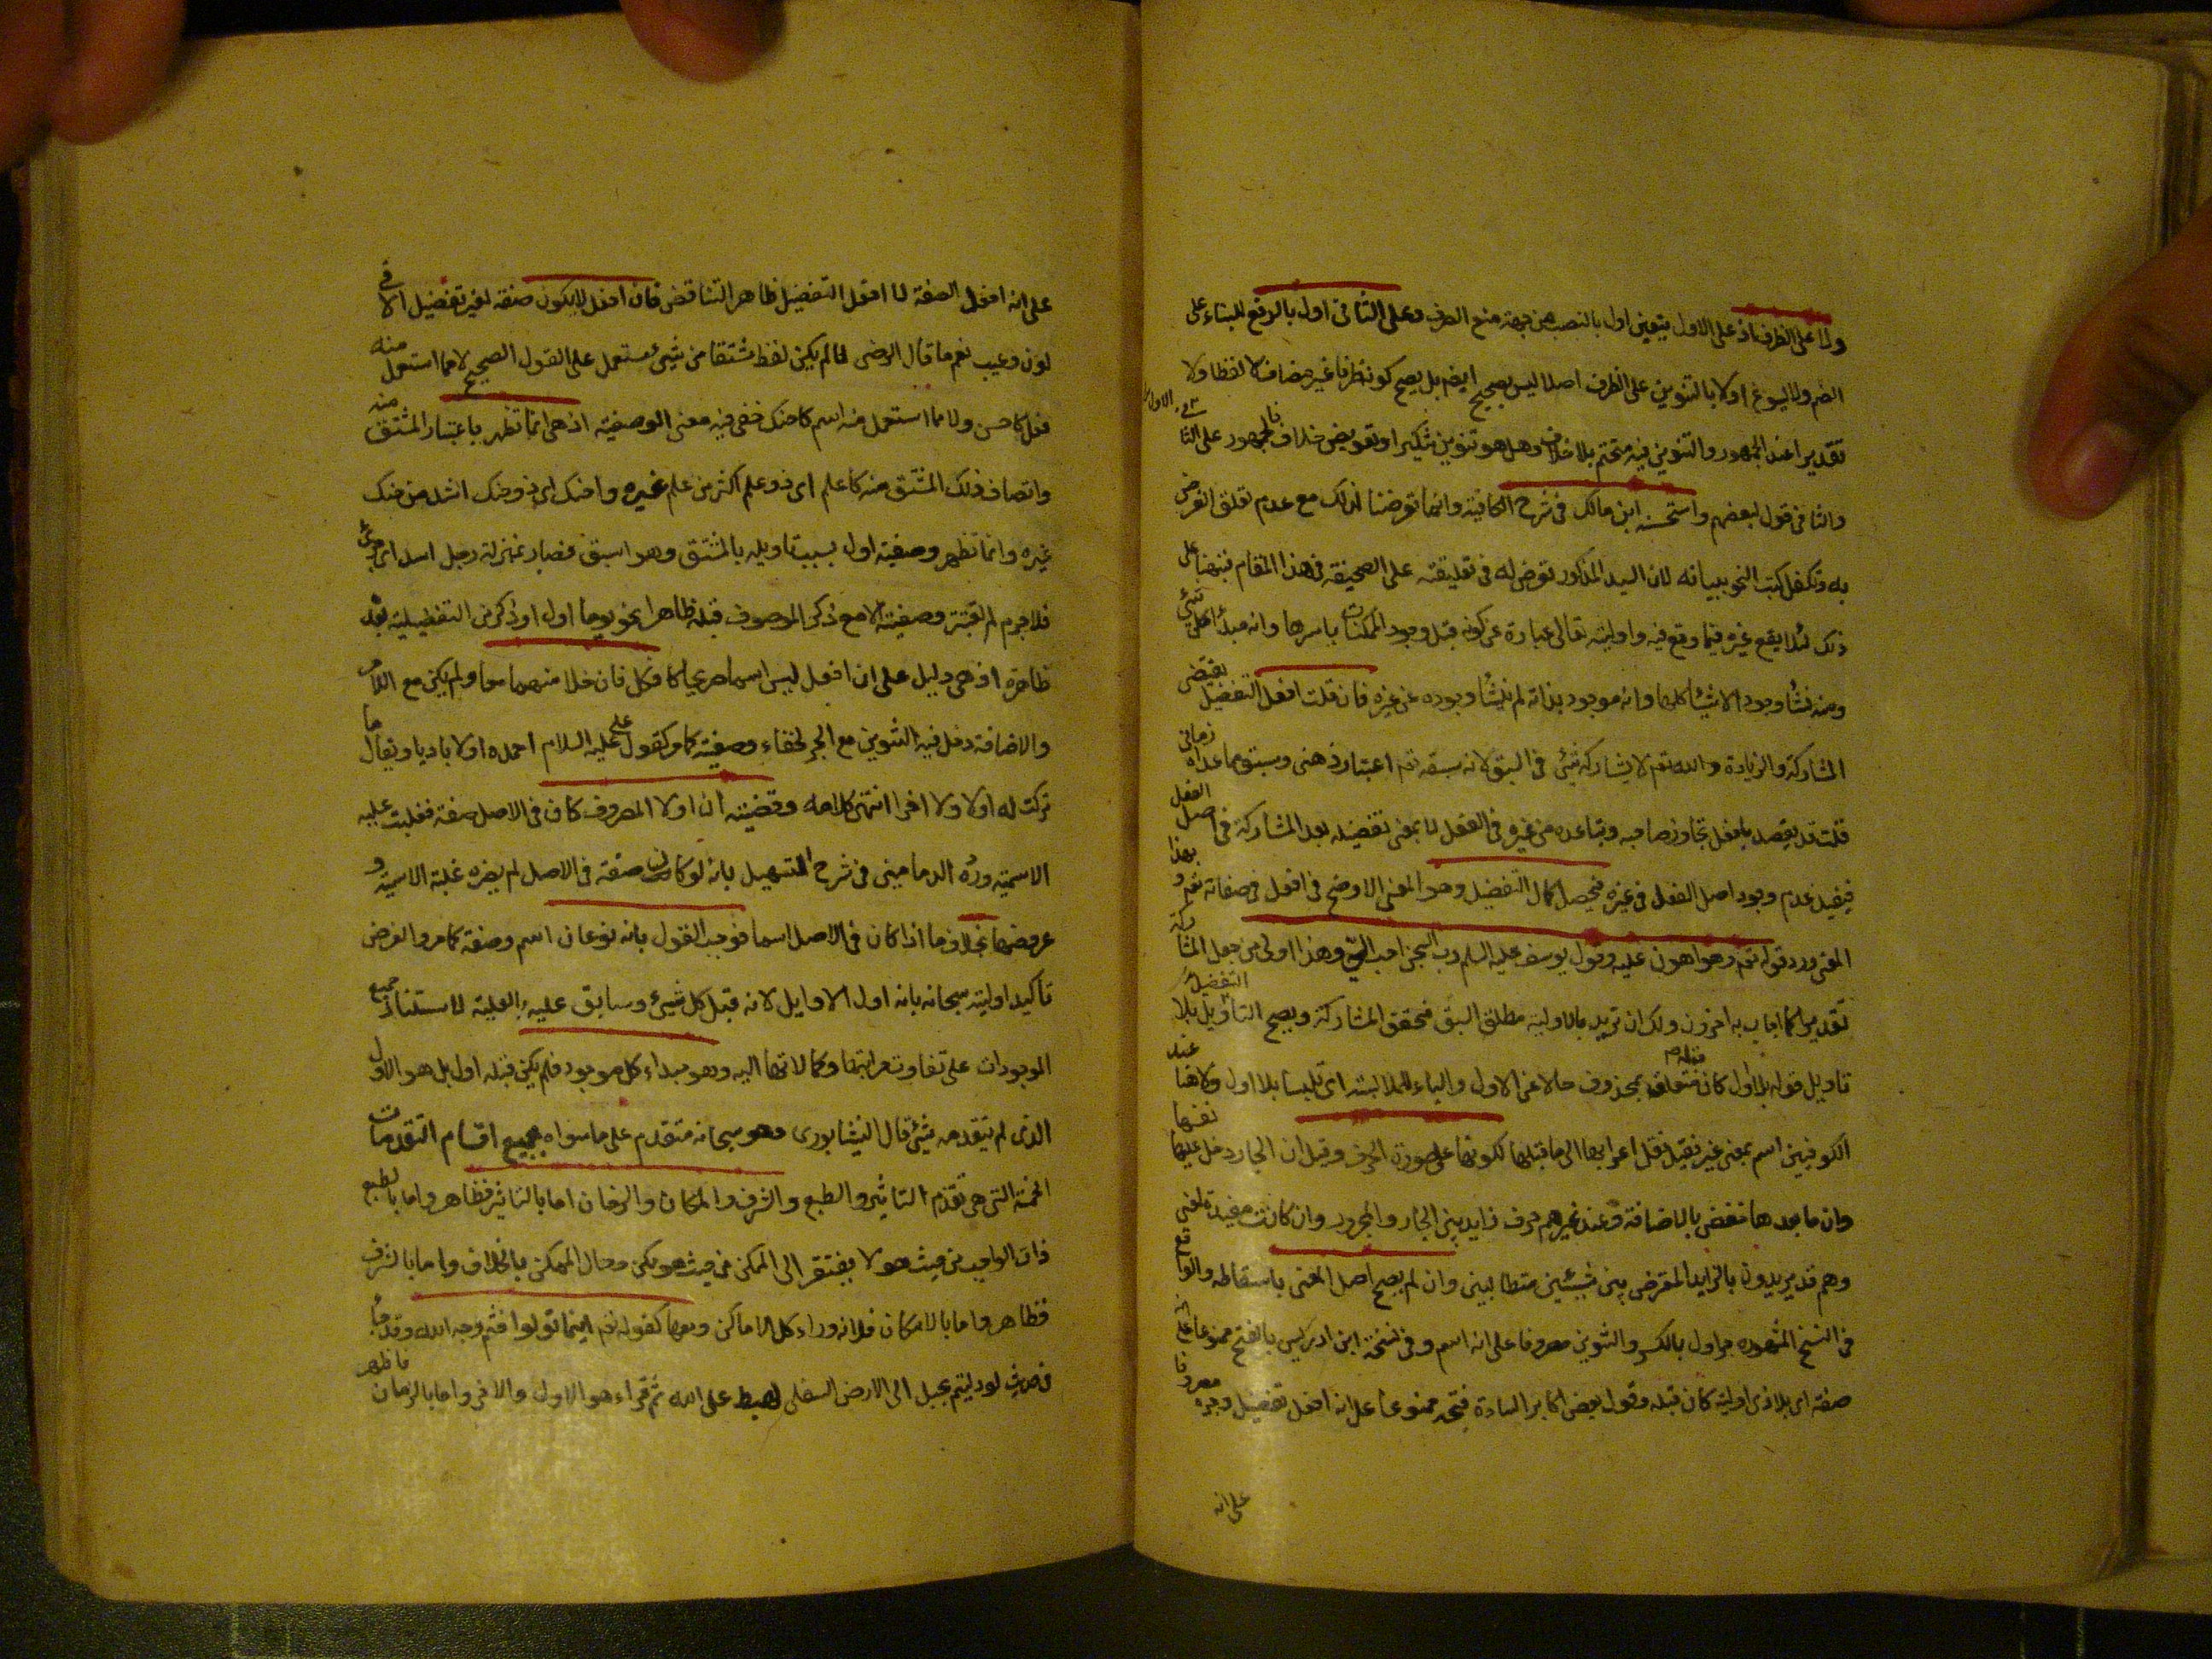 ولا على الظرف اذ على الاول يتعين اول بالنصب من جهة منع الصرف وعلى الثانى اول بالرفع للبناء على
الضم ولا ليوغ اولا بالتنوين على الظرف اصلا ليس بصحيح ايضم بل يصح كونه ظرفا غير مضاف لا لفظا ولا
تقديرا عند الجمهور والتنوين فيه متحتم بلا خلاف وهل هو تنوين تنكير او تعويض خلاف فالجمهور على الثا
والثانى قول لبعضهم واستحسنه ابن مالك فى شرح الكافية وانما تعرضنا لذلك مع عدم تعلق الغرض
به وتكفل كتب النحو ببيانه لان السيد المذكور تعرض له فى تعليقته على الصحيفة فى هذا المقام فنبهنا على
ذلك لئلا يقع غيره فيما وقع فيه واوليته تعالى عبارة عن كونه قبل وجود الممكنات باسرها وانه مبدأ لكل شئ
ومنه نشأ وجود الاشيأ كلها وانه موجود بذاته لم ينشأ وجوده عن غيره فان قلت افعل التفضيل يقتضى
المشاركة والزيادة والله تعم لا يشاركه شئ فى السبق لانه سبقه تعم اعتبار ذهنى وسبق ما عداه زمانى
قلت قد يقصد بافعل تجاوز صاحبه وتباعده من غيره فى الفعل لا بمعنى تفضيله بعد المشاركة فى اصل الفعل
فيفيد عدم وجود اصل الفعل فى غيره فيحصل كمال التفضيل وهو المعنى الاوضح فى افعل فى صفاته تعم و بهذا
المعنى ورد قوله تعم وهو اهون عليه وقول يوسف عليه السلم رب السجن احب الىّ وهذا اولى من جعل المشا ركة
تقديريا كما اجاب به اخرون ولك ان تريد بالاولية مطلق السبق فتحقق المشاركة ويصح التأويل بلا التفضيل
تاويل قوله بلا اول كان قبله متعلق بمحذوف حالا عن الاول والباء للملابسة اى تلبسا بلا اول ولا هنا عند
الكوفيين اسم بمعنى غير فقيل نقل اعرابها الى ما قبلها لكونها على صورة الحرف وقيل ان الجار دخل عليها نفسها
وان ما بعدها خفض بالاضافة وعند غيرهم حرف زايد بين الجار والمجرور وان كانت مفيدة لمعنى
وهم قد يريدون بالزايد المعترض بين شيئين متطالبين وان لم يصح اصل المعنى باسقاطه والواقع
فى النسخ المشهوره جر اول بالكسر والتنوين مصروفا على انه اسم وفى نسخة ابن ادريس بالفتح ممنوعا على انه
صفة اى بلا ذى اولية كان قبله وقول بعض اكابر السادة فتحه ممنوعا على انه افعل تفضيل وجره مصروفا
على انه
على انه افعل الصفة لا افعل التفضيل ظاهر التناقض فان افعل لا يكون صفة لغير تفضيل الا فى
لون وعيب نعم ما قال الرضى لما لم يكن لفظ مشتقا من شئ مستعمل على القول الصحيح لا مما استعمل منه
فعل كاحسن ولا مما استعمل منه اسم كاحنك خفى فيه معنى الوصفية اذ هى انما تظهر باعتبار المشتق منه
واتصاف ذلك المشتق منه كاعلم اى ذو علم اكثر من علم غيره واحنك اى ذو حنك اشد من حنك
غيره وانما تظهر وصفية اول بسبب تاويله بالمشتق وهو اسبق فصار بمنزلة رجل اسد اى جرئ
فلا جرم لم تعتبر وصفيته الا مع ذكر الموصوف قبله ظاهرا نحو يوما اول او ذكر من التفضيلية بعد
ظاهرة اذ هى دليل على ان افعل ليس اسما صريحا كافكل فان خلا منهما معا ولم يكن مع اللام
والاضافة دخل فيه التنوين مع الجر لخفاء وصفيته كما مر كقول على عليه السلام احمده اولا باديا ويقال ما
تركت له اولا ولا اخرا انتهى كلامه وقضيته ان اولا المصروف كان فى الاصل صفة فغلبت عليه
الاسمية ورده الدمامينى فى شرح التسهيل بانه لو كان صفة فى الاصل لم يضره غلبة الاسمية و
عروضها بخلاف ما اذا كان فى الاصل اسما فوجب القول بانه نوعان اسم وصفة كما مر والغرض
تاكيد اوليته سبحانه بانه اول الاوايل لانه قبل كل شئ وسابق عليه بالعلية لاستناد جميع
الموجودات على تفاوت مراتبها وكمالاتها اليه وهو مبداء كل موجود فلم يكن قبله اول بل هو الاول
الذى لم يتقدمه شئ قال النيشابورى وهو سبحانه متقدم على ما سواه بجميع اقسام التقدمات
الخمسة التى هى تقدم التاثير والطبع والشرف والمكان والزمان اما بالتاثير فظاهر واما بالطبع
فان الواجب من حيث هو لا يفتقر الى الممكن من حيث هو ممكن وحال الممكن بالخلاف واما بالشرف
فظاهر واما بالامكان فلانه وراء كل الاماكن ومعها كقوله تعم اينما تولوا فثم وجه الله وقد جاء
فى حديث لو دليتم بحبل الى الارض السفلى لهبط على الله ثم قراء هو الاول والاخر واما بالزمان فاظهر